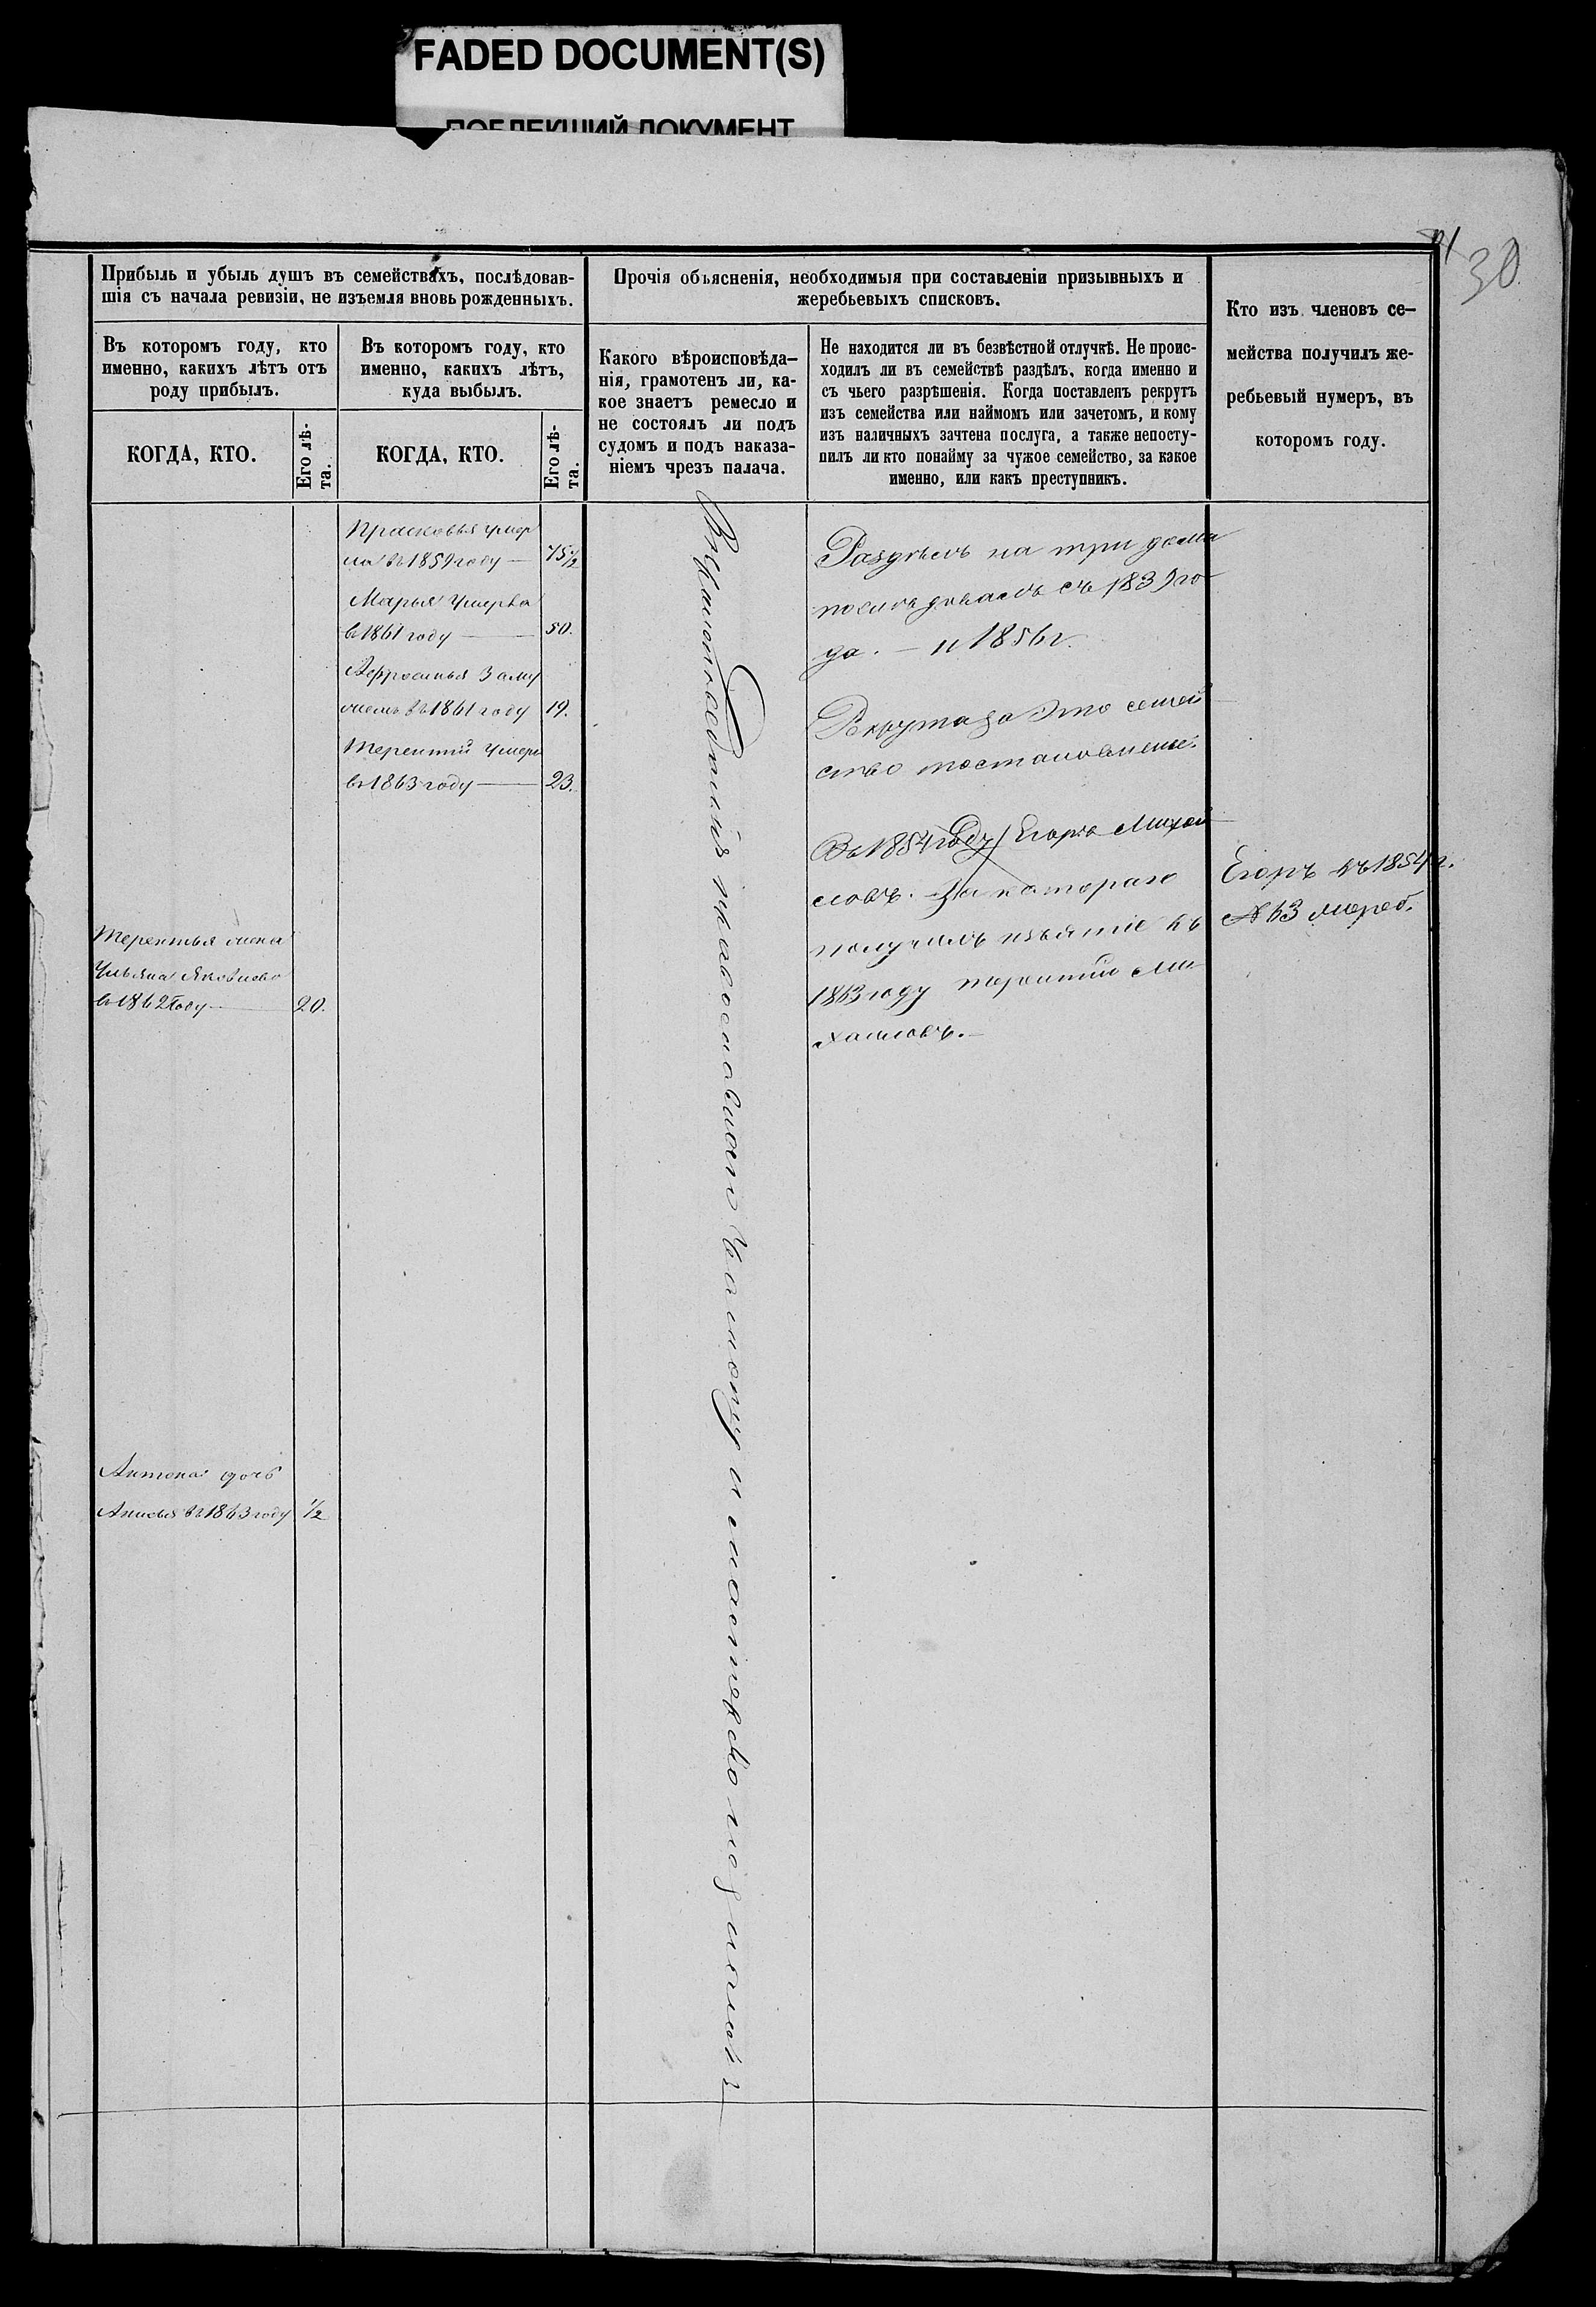 FADED DOCUMENT(S)
ПОБЛЕКШИЙ ДОКУМЕНТ
30
Прибыль и убыль душъ въ семействахъ, послѣдовав-
шія съ начала ревизіи, не изъемля вновь рожденныхъ.
Въ которомъ году, кто
именно, какихъ лѣтъ отъ
роду прибылъ.
КОГДА, КТО.
Его лѣ-
та.
Въ которомъ году, кто
именно, какихъ лѣтъ,
куда выбылъ.
КОГДА, КТО.
Его лѣ-
та.
Прочія объясненія, необходимыя при составленіи призывныхъ и
жеребьевыхъ списковъ.
Какого вѣроисповѣда-
нія, грамотенъ ли, ка-
кое знаетъ ремесло и
не состоялъ ли подъ
судомъ и подъ наказа-
ніемъ чрезъ палача.
Не находится ли въ безвѣстной отлучкѣ. Не проис-
ходилъ ли въ семействѣ раздѣлъ, когда именно и
съ чьего разрѣшенія. Когда поставленъ рекрутъ
изъ семейства или наймомъ или зачетомъ, и кому
изъ наличныхъ зачтена послуга, а также непосту-
пилъ ли кто понайму за чужое семейство, за какое
именно, или какъ преступникъ.
Кто изъ членовъ се-
мейства получилъ же-
ребьевый нумеръ, въ
которомъ году.
Терентья жена
Ульяна Яковлева
въ 1862 году — 20.
Антона дочь
Анисья въ 1863 году 1/2
Прасковья умер
ла въ 1859 году — 75 1/2
Марья умерла
въ 1861 году — 50.
Афросинья заму
жемъ въ 1861 году 19.
Терентій умеръ
въ 1863 году — 23.
православнаго
и
Раздѣлъ на три дома
послѣдовалъ съ 1839 го
да. — и 1856 г.
Рекрута за это семей
ство
Въ 1854 году Егоръ Михай
ловъ. За котораго
получилъ изъятіе въ
1863 году Терентій Ми
хайловъ. —
Егоръ въ 1854 г.
№ 63 жереб.